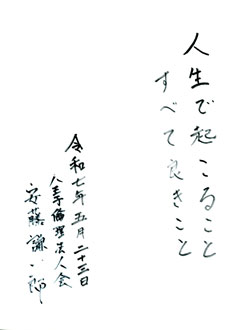 人生で起こること
すべて良きこと
令和七年五月二十三日
八王子倫理法人会
安藤謙一郎